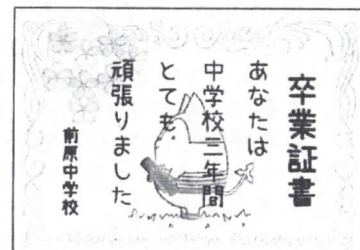 卒業証書
あなたは
中学校三年間
とても
頑張りました
前原中学校